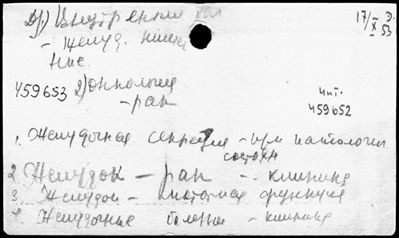 Внутренние бол
17/X 53
- Желуд. кишеч
ние.
459653 2) Онкология
- рак
чит.
459652
1. Желудочная секреция - при патологич
состоян
2 Желудок - рак - клиника
3 Желудок - кислотная функция
4 Желудочные болезни - клиника